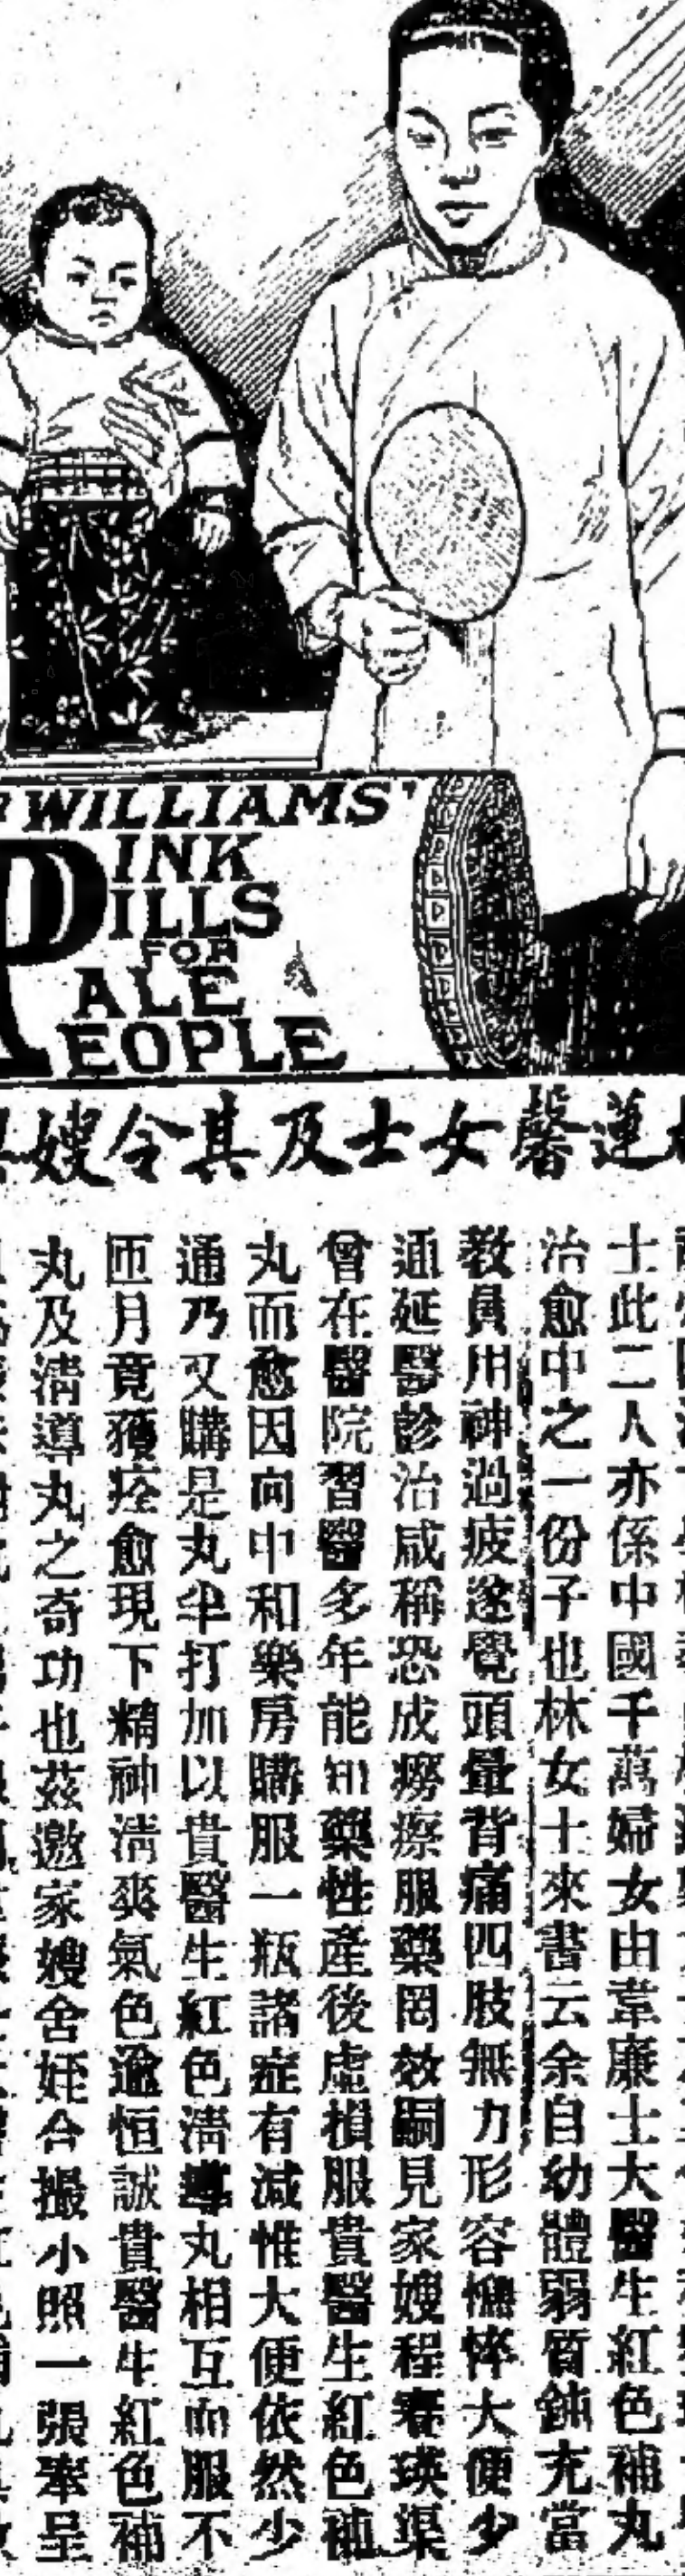 WILLIAMS'
PINK
PILLS
FOR
PALE
PEOPLE
蓮馨女士及其令嫂
士此二人亦係中國千萬婦女由韋廉士大醫生紅色補丸
治愈中之一份子也林女士來書云余自幼體弱質鈍充當
教員用神過疲遂覺頭暈背痛四肢無力形容憔悴大便少
通延醫診治咸稱恐成癆瘵服藥罔效嗣見家嫂程賽瑛渠
曾在醫院習醫多年能知藥性產後虛損服貴醫生紅色補
丸而愈因向中和藥房購服一瓶諸症有減惟大便依然少
通乃又購是丸半打加以貴醫生紅色清導丸相互而服不
匝月竟獲痊愈現下精神清爽氣色逾恒誠貴醫生紅色補
丸及清導丸之奇功也茲邀家嫂舍姪合撮小照一張奉呈